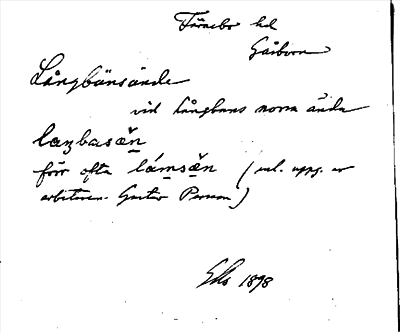 Färnebo hd
Gåsborn
Långbansände
vid Långbans norra ände
laŋbasǝ̆n
förr ofta lámsǝ̆n (enl. uppg. av
arbetaren Gustav Persson)
1898